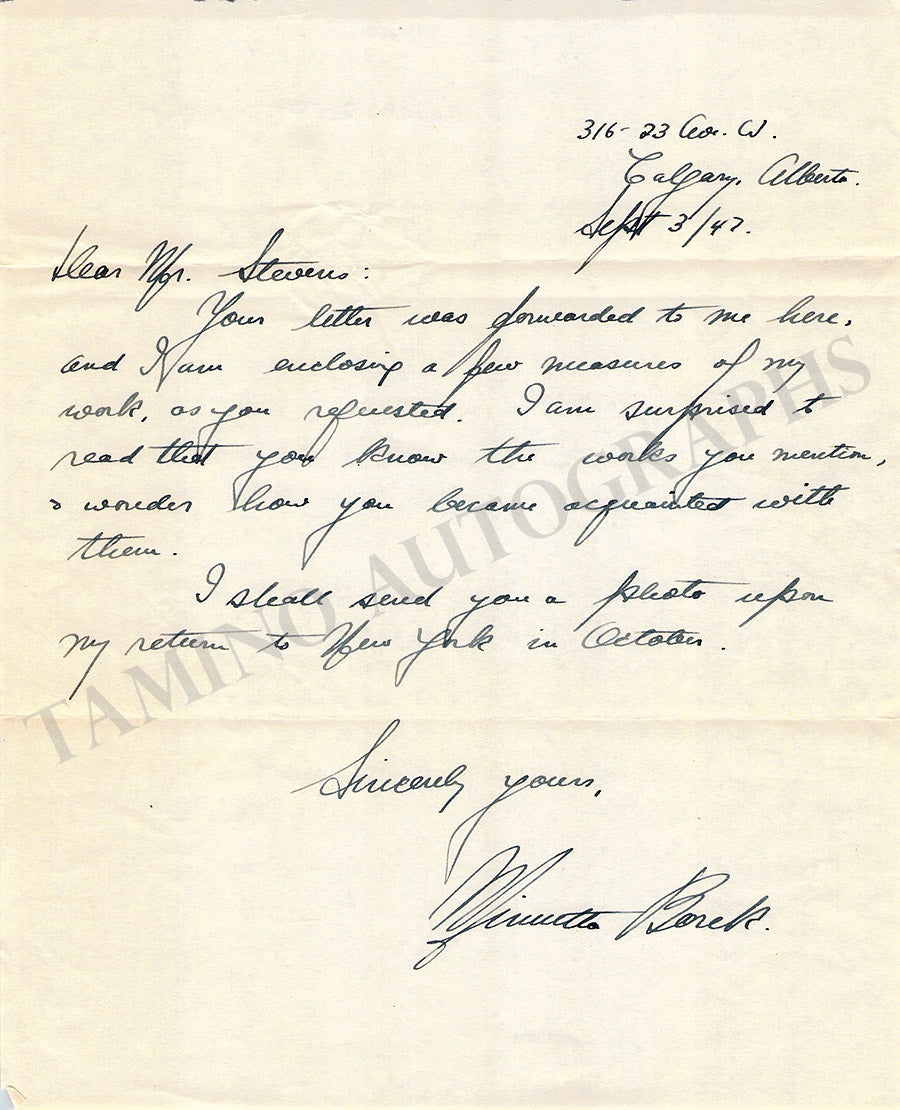 316 - 23 Ave. W.
Calgary, Alberta.
Sept 3/47.
Dear Mr. Stevens:
Your letter was forwarded to me here,
and I am enclosing a few measures of my
work, as you requested. I am surprised to
read that you know the works you mention,
& wonder how you became acquainted with
them.
I shall send you a photo upon
my return to New York in October.
Sincerely yours,
Minuetta Borek.
TAMINO AUTOGRAPHS